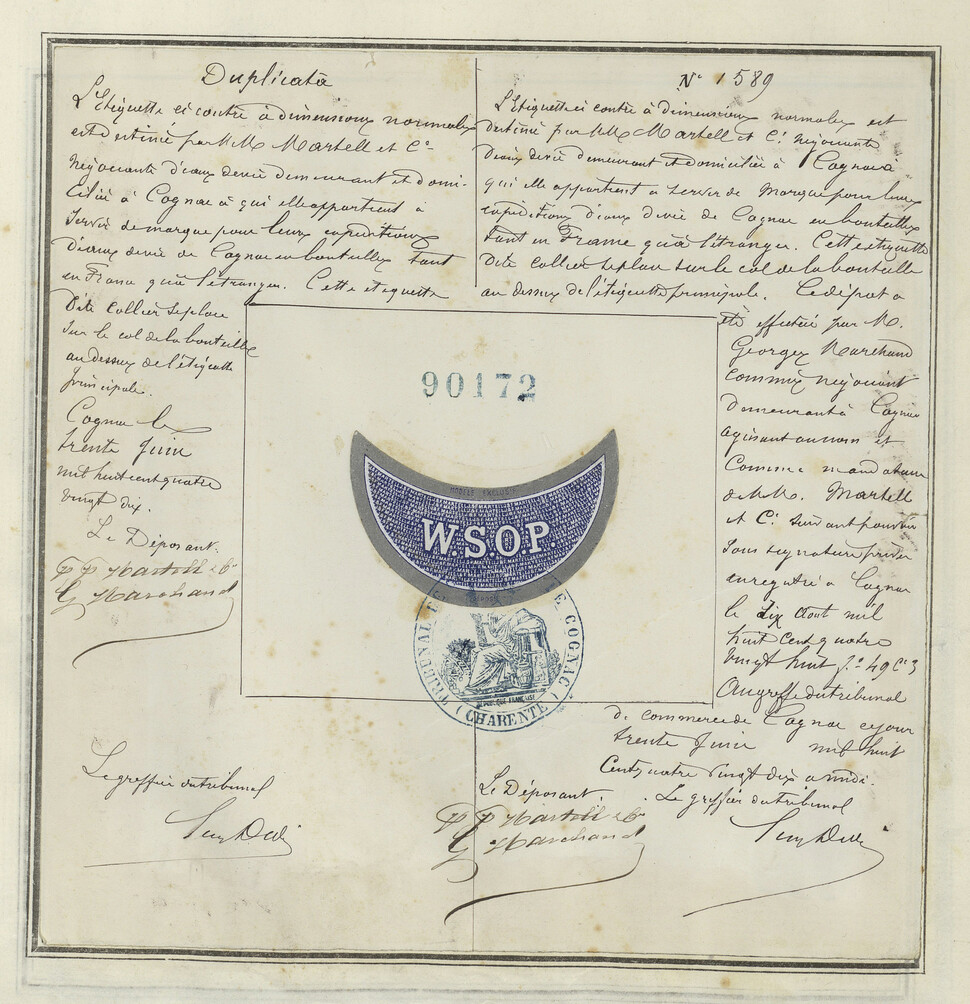 Duplicata
L'Etiquette ci contre à dimensions normales
est destinée par MM. Martell et Cie
négociants d'eaux de vie demeurant et domi-
ciliés à Cognac à qui elle appartient à
servir de marque pour leurs expéditions
d'eaux de vie de Cognac en bouteilles tant
en France qu'à l'étranger. Cette etiquette
dite collier se place
sur le col de la bouteille
au dessus de l'étiquette
principale.
Cognac le
trente Juin
mil huit cent quatre
vingt dix.
Le Déposant.
PP Martell & Co
G Marchand
Le greffier du tribunal
No 1589
L'Etiquette ci contre à dimensions normales est
destinée par MM. Martell et Cie négociants
d'eaux de vie demeurant et domiciliés à Cognac à
qui elle appartient à servir de marque pour leurs
expéditions d'eaux de vie de Cognac en bouteilles
tant en France qu'à l'étranger. Cette etiquette
dite collier se place sur le col de la bouteille
au dessus de l'étiquette principale. Ce dépôt a
été effectué par M.
Georges Marchand
commis négociant
demeurant à Cognac
agissant au nom et
comme mandataire
de MM. Martell
et Cie suivant pouvoir
sous signature privée
enregistré à Cognac
le dix Août mil
huit cent quatre
vingt huit fo 49 Ce 3
Au greffe du tribunal
de commerce de Cognac ce jour
trente Juin mil huit
cent quatre vingt dix à midi.
Le Déposant.
PP Martell & Co
G Marchand
Le greffier du tribunal
90172
MODÈLE EXCLUSIF
W.S.O.P.
TRIBUNAL DE COGNAC
RÉPUBLIQUE FRANÇAISE
(CHARENTE)